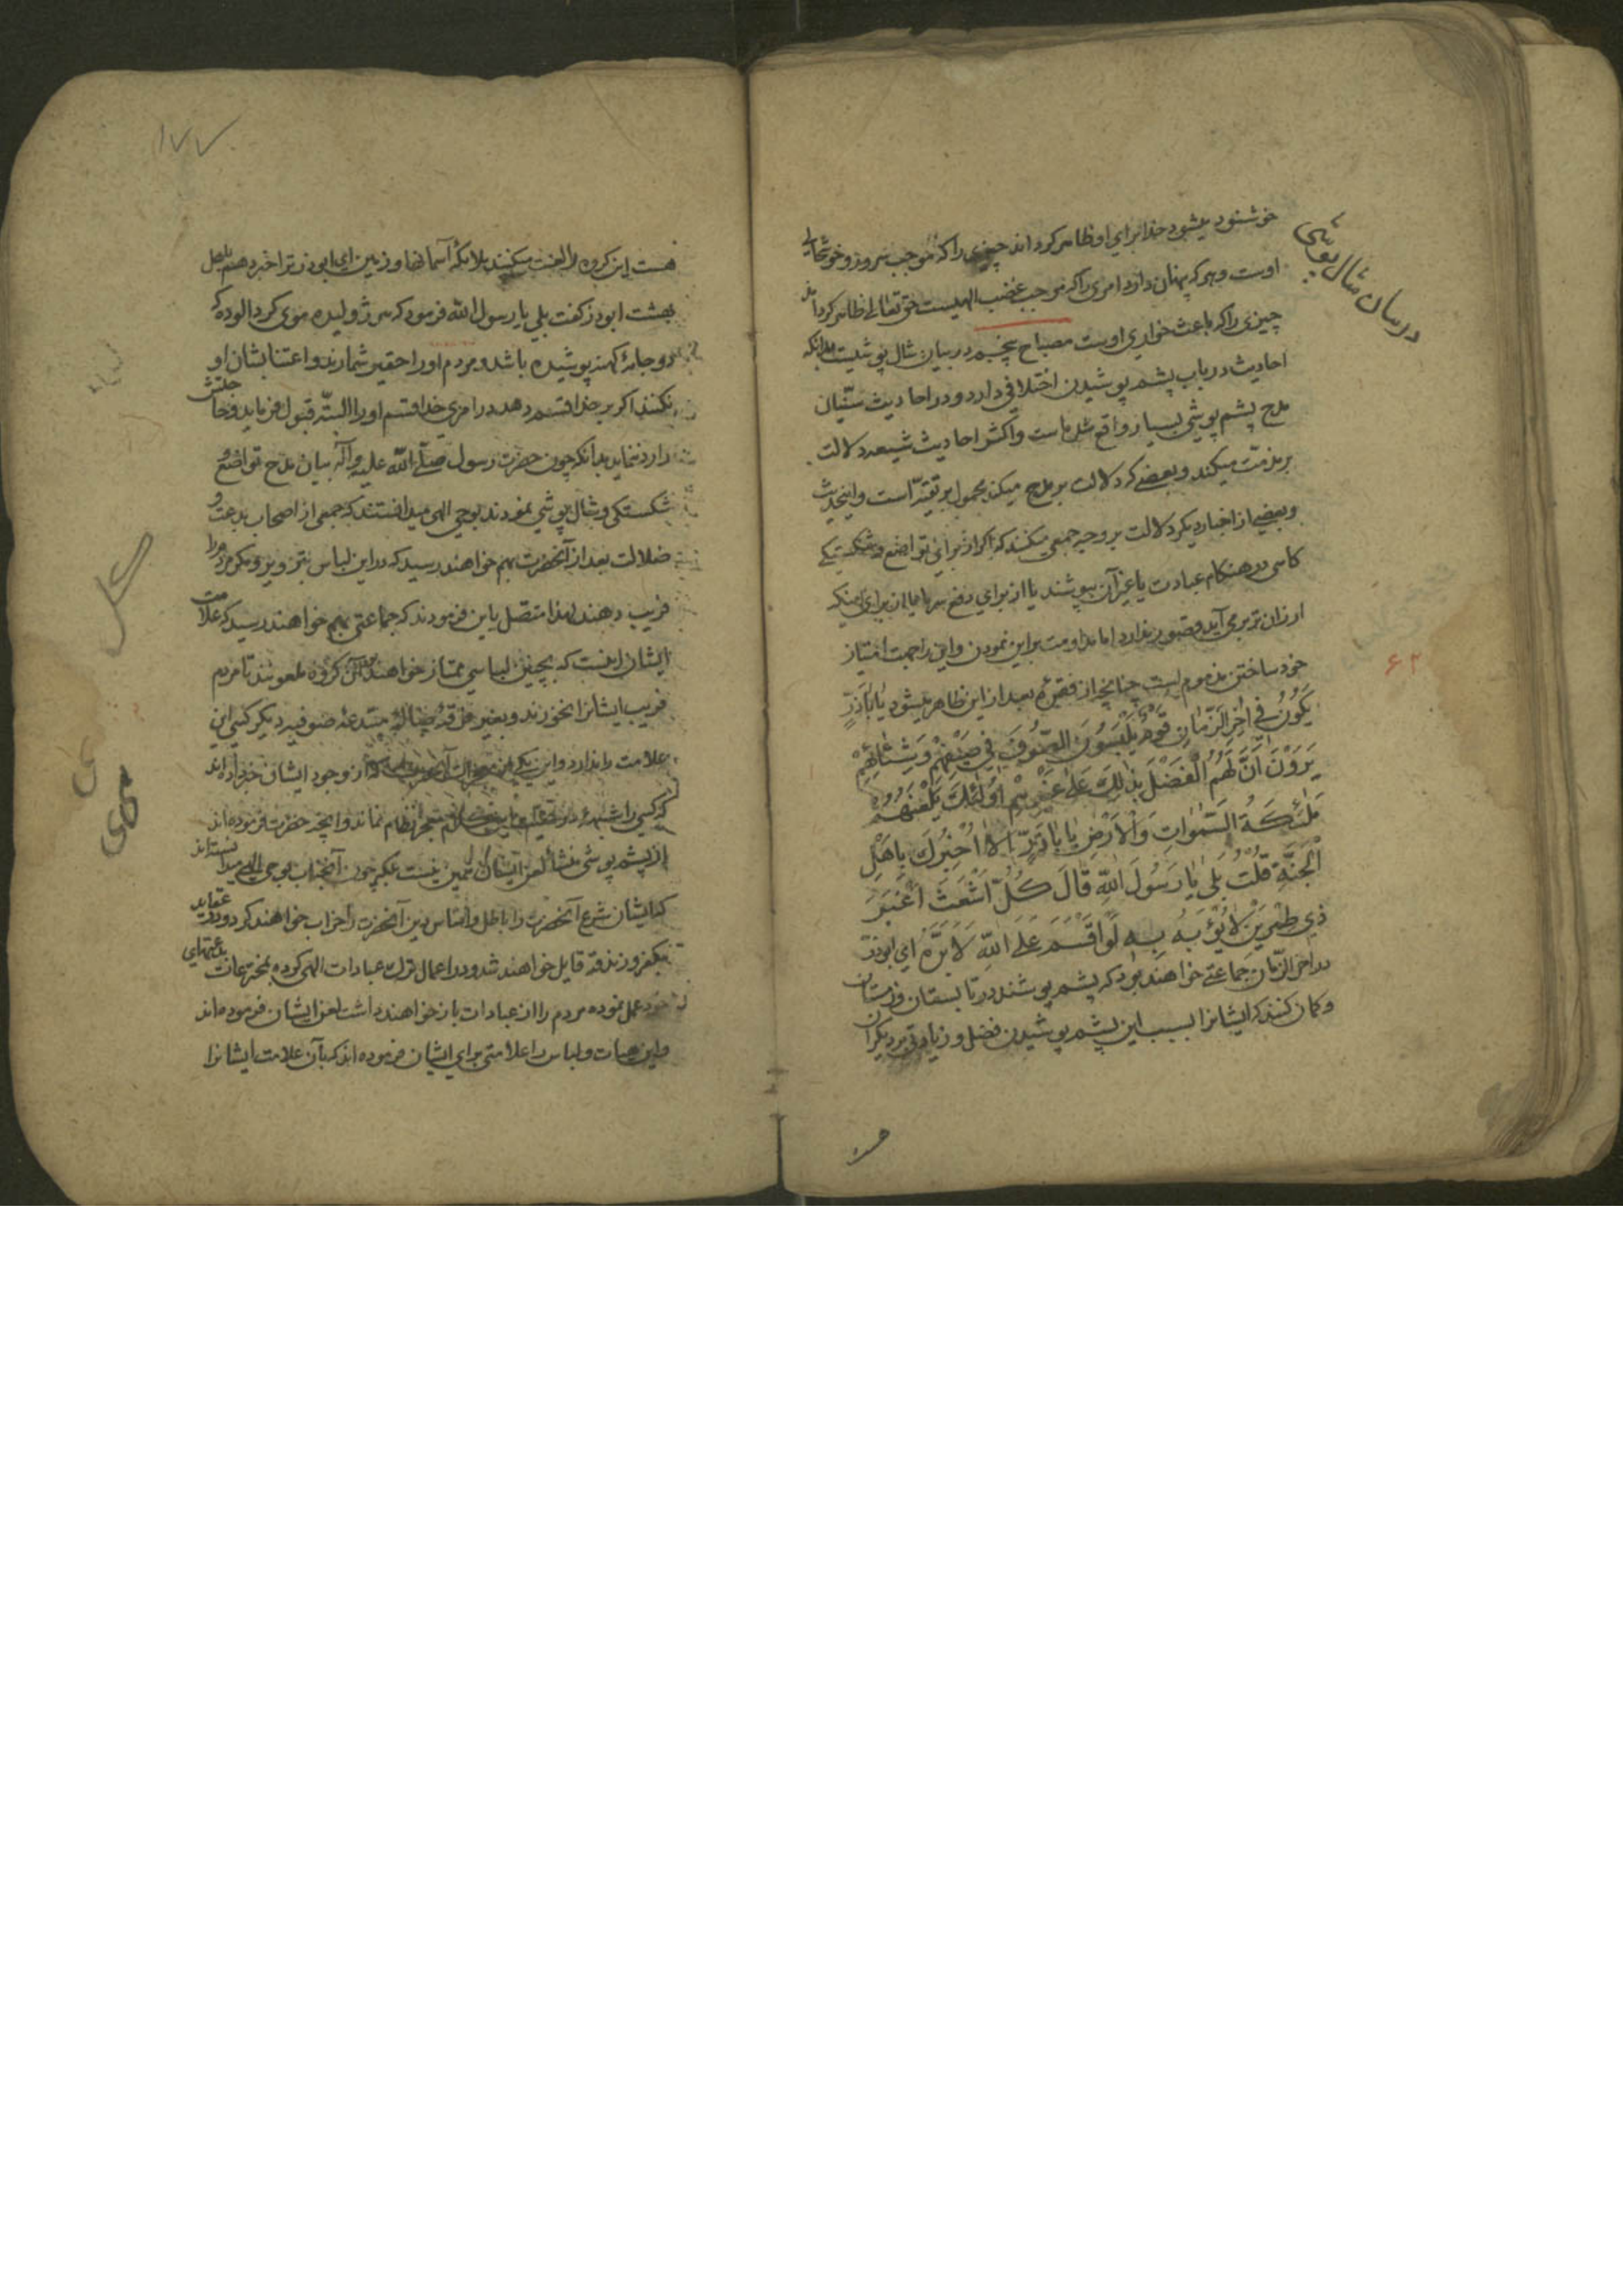 خوشنود میشود خدا برای او ظاهر کرداند چیزی را که موجب سرور و خوشحالی
اوست و هر که پنهان دارد امری را که موجب غضب الهیست حق تعالی ظاهر کرداند
چیزی را که باعث خواری اوست مصباح پنجم در بیان شال پوشیست بدانکه
احادیث در باب پشم پوشیدن اختلافی دارد و در احادیث سنّیان
مدح پشم پوشی بسیار واقع شده است و اکثر احادیث شیعه دلالت
بر مذمت میکند و بعضی که دلالت بر مدح میکند محمول بر تقیّه است و اینحدیث
و بعضی از اخبار دیکر دلالت بر وجه جمعی میکنند که اکر از برای تواضع و شکستکی
کاهی در هنکام عبادت یا غیر آن بپوشند یا از برای دفع سرما یا از برای اینکه
ارزان تر بر می آید قصوری ندارد اما مداومت بر این نمودن و این را جهت امتیاز
خود ساختن مذموم است چنانچه از فقره بعد از این ظاهر میشود یا اباذرّ
یَکُونُ فِی اٰخِرِ الزَّمٰانِ قَوْمٌ یَلْبَسُونَ الصُّوفَ فِی صَیْفِهِمْ وَ شِتٰائِهِمْ
یَرَوْنَ اَنَّ لَهُمُ الْفَضْلَ بِذٰلِکَ عَلٰی غَیْرِهِمْ اُولٰئِکَ یَلْعَنُهُمْ
مَلٰئِکَةُ السَّمٰوٰاتِ وَ الْاَرْضِ یٰا اَبٰاذَرٍّ اَلٰا اُخْبِرُکَ بِاَهْلِ
الْجَنَّةِ قُلْتُ بَلٰی یٰا رَسُولَ اللّٰهِ قٰالَ کُلُّ اَشْعَثَ اَغْبَرَ
ذِی طِمْرَیْنِ لٰا یُؤْبَهُ بِهِ لَوْ اَقْسَمَ عَلَی اللّٰهِ لَاَبَرَّهُ ای ابوذر
در آخر الزّمان جماعتی خواهند بود که پشم پوشند در تابستان و زمستان
و کمان کنند که ایشانرا بسبب این پشم پوشیدن فضل و زیادتی بر دیکران
هست
در بیان شال پوشی
۶۲
۱۷۷
هست این کروه را لعنت میکنند ملائکه آسمانها و زمین ای ابوذر ترا خبر دهم باهل
بهشت ابوذر کفت بلی یا رسول الله فرمود که هر ژولیده موی کرد آلوده که
دو جامهٔ کهنه پوشیده باشد و مردم او را حقیر شمارند و اعتنا بشان او
نکنند اکر بر خدا قسم دهد در امری خدا قسم او را البتّه قبول فرماید و حاجتش
را رد ننماید بدانکه چون حضرت رسول صلّی الله علیه و آله بیان مدح تواضع و
شکستکی و شال پوشی نمودند بوحی الهی میدانستند که جمعی از اصحاب بدعت و
ضلالت بعد از آنحضرت بهم خواهند رسید که در این لباس بتزویر و مکر مردم را
فریب دهند لهذا متصل باین فرمودند که جماعتی بهم خواهند رسید که علامت
ایشان اینست که بچنین لباسی ممتاز خواهند بود آن کروه ملعونند تا مردم
فریب ایشانرا نخورند و بغیر فرقهٔ ضالهٔ مبتدعهٔ صوفیه دیکر کسی این
علامت را ندارد و این یکی از معجزات آنحضرت است که از وجود ایشان خبر داده اند
که کسی را شبهه در حقیقت این کلام معجز نظام نماند و آنچه حضرت فرموده اند
از پشم پوشی منشأ لعن ایشان همین نیست بلکه چون آنجناب بوحی الهی میدانسته اند
که ایشان شرع آنحضرت را باطل و اساس دین آنحضرت را خراب خواهند کرد و در عقاید
بکفر و زندقه قایل خواهند شد و در اعمال ترک عبادات الهی کرده بمخترعات بدعتهای
خود عمل نموده مردم را از عبادات باز خواهند داشت لعن ایشان فرموده اند
و این هیأت و لباس را علامتی برای ایشان فرموده اند که بآن علامت ایشانرا